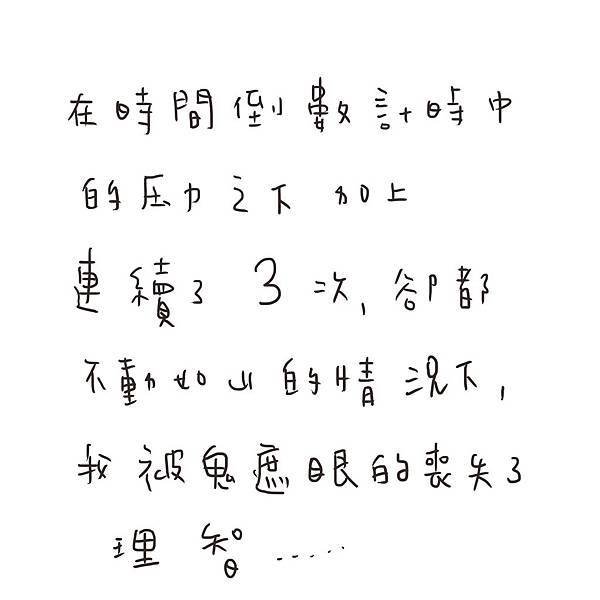 在時間倒數計時中
的压力之下 加上
連續了 3 次,卻都
不動如山的情況下,
我被鬼遮眼的喪失了
理智……